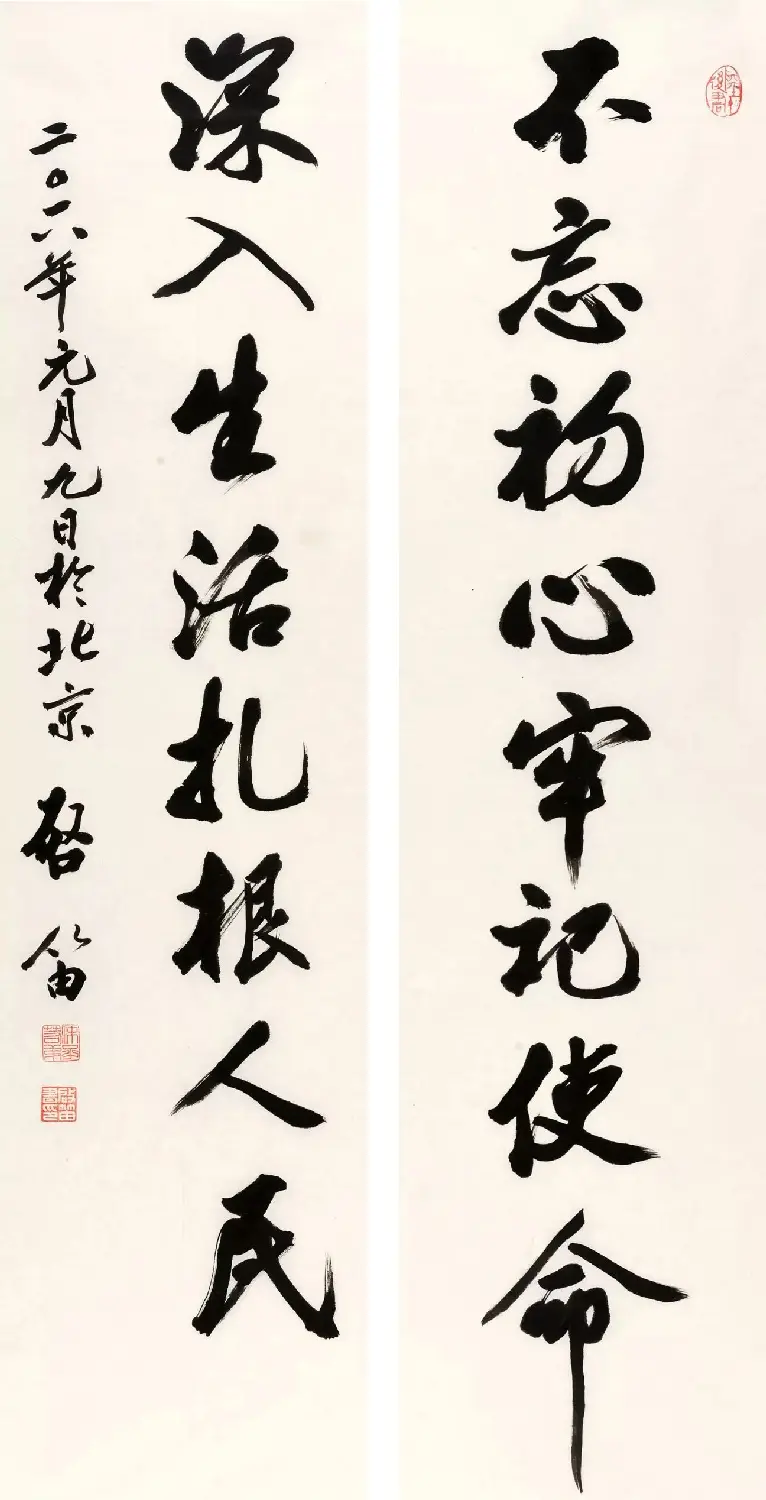 不忘初心牢記使命
深入生活扎根人民
二〇一六年元月九日於北京 啓笛